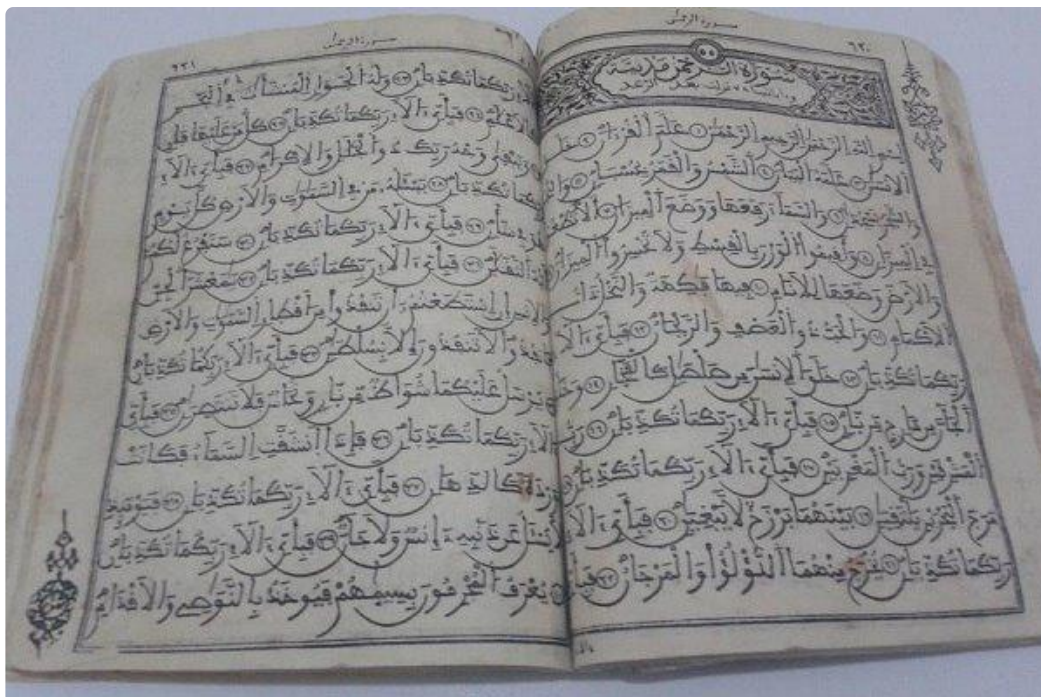 ٦٢٠
سورة الرحمن
٥٥
سورة الرحمن مدنية
نزلت بعد الرعد
بسم الله الرحمن الرحيم الرحمن ١ علم القرءان ٢ خلق
الانسان ٣ علمه البيان ٤ الشمس والقمر بحسبان ٥ والنجم
والشجر يسجدان ٦ والسماء رفعها ووضع الميزان ٧ ألا تطغوا
في الميزان ٨ وأقيموا الوزن بالقسط ولا تخسروا الميزان ٩
والارض وضعها للانام ١٠ فيها فكهة والنخل ذات
الاكمام ١١ والحب ذو العصف والريحان ١٢ فبأي ءالاء
ربكما تكذبان ١٣ خلق الانسن من صلصل كالفخار ١٤ وخلق
الجان من مارج من نار ١٥ فبأي ءالاء ربكما تكذبان ١٦ رب
المشرقين ورب المغربين ١٧ فبأي ءالاء ربكما تكذبان ١٨
مرج البحرين يلتقين ١٩ بينهما برزخ لا يبغين ٢٠ فبأي ءالاء
ربكما تكذبان ٢١ يخرج منهما اللؤلؤ والمرجان ٢٢ فبأي
٦٢١
سورة الرحمن
ءالاء ربكما تكذبان ٢٣ وله الجوار المنشئات في البحر
كالاعلم ٢٤ فبأي ءالاء ربكما تكذبان ٢٥ كل من عليها فان
٢٦ ويبقى وجه ربك ذو الجلل والاكرام ٢٧ فبأي ءالاء
ربكما تكذبان ٢٨ يسئله من في السموات والارض كل يوم
هو في شأن ٢٩ فبأي ءالاء ربكما تكذبان ٣٠ سنفرغ لكم
أيه الثقلن ٣١ فبأي ءالاء ربكما تكذبان ٣٢ يمعشر الجن
والانس إن استطعتم أن تنفذوا من أقطار السموات والارض
فانفذوا لا تنفذون إلا بسلطن ٣٣ فبأي ءالاء ربكما تكذبان
٣٤ يرسل عليكما شواظ من نار ونحاس فلا تنتصرن ٣٥ فبأي
ءالاء ربكما تكذبان ٣٦ فإذا انشقت السماء فكانت
وردة كالدهان ٣٧ فبأي ءالاء ربكما تكذبان ٣٨ فيومئذ
لا يسئل عن ذنبه إنس ولا جان ٣٩ فبأي ءالاء ربكما تكذبان
٤٠ يعرف المجرمون بسيمهم فيوخذ بالنوصي والاقدام